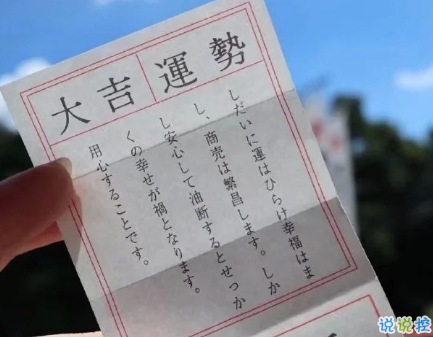 運勢
大吉
しだいに運はひらけ幸福はま
し、商売は繁昌します。しか
し安心して油断するとせっか
くの幸せが禍となります。
用心することです。
说说控